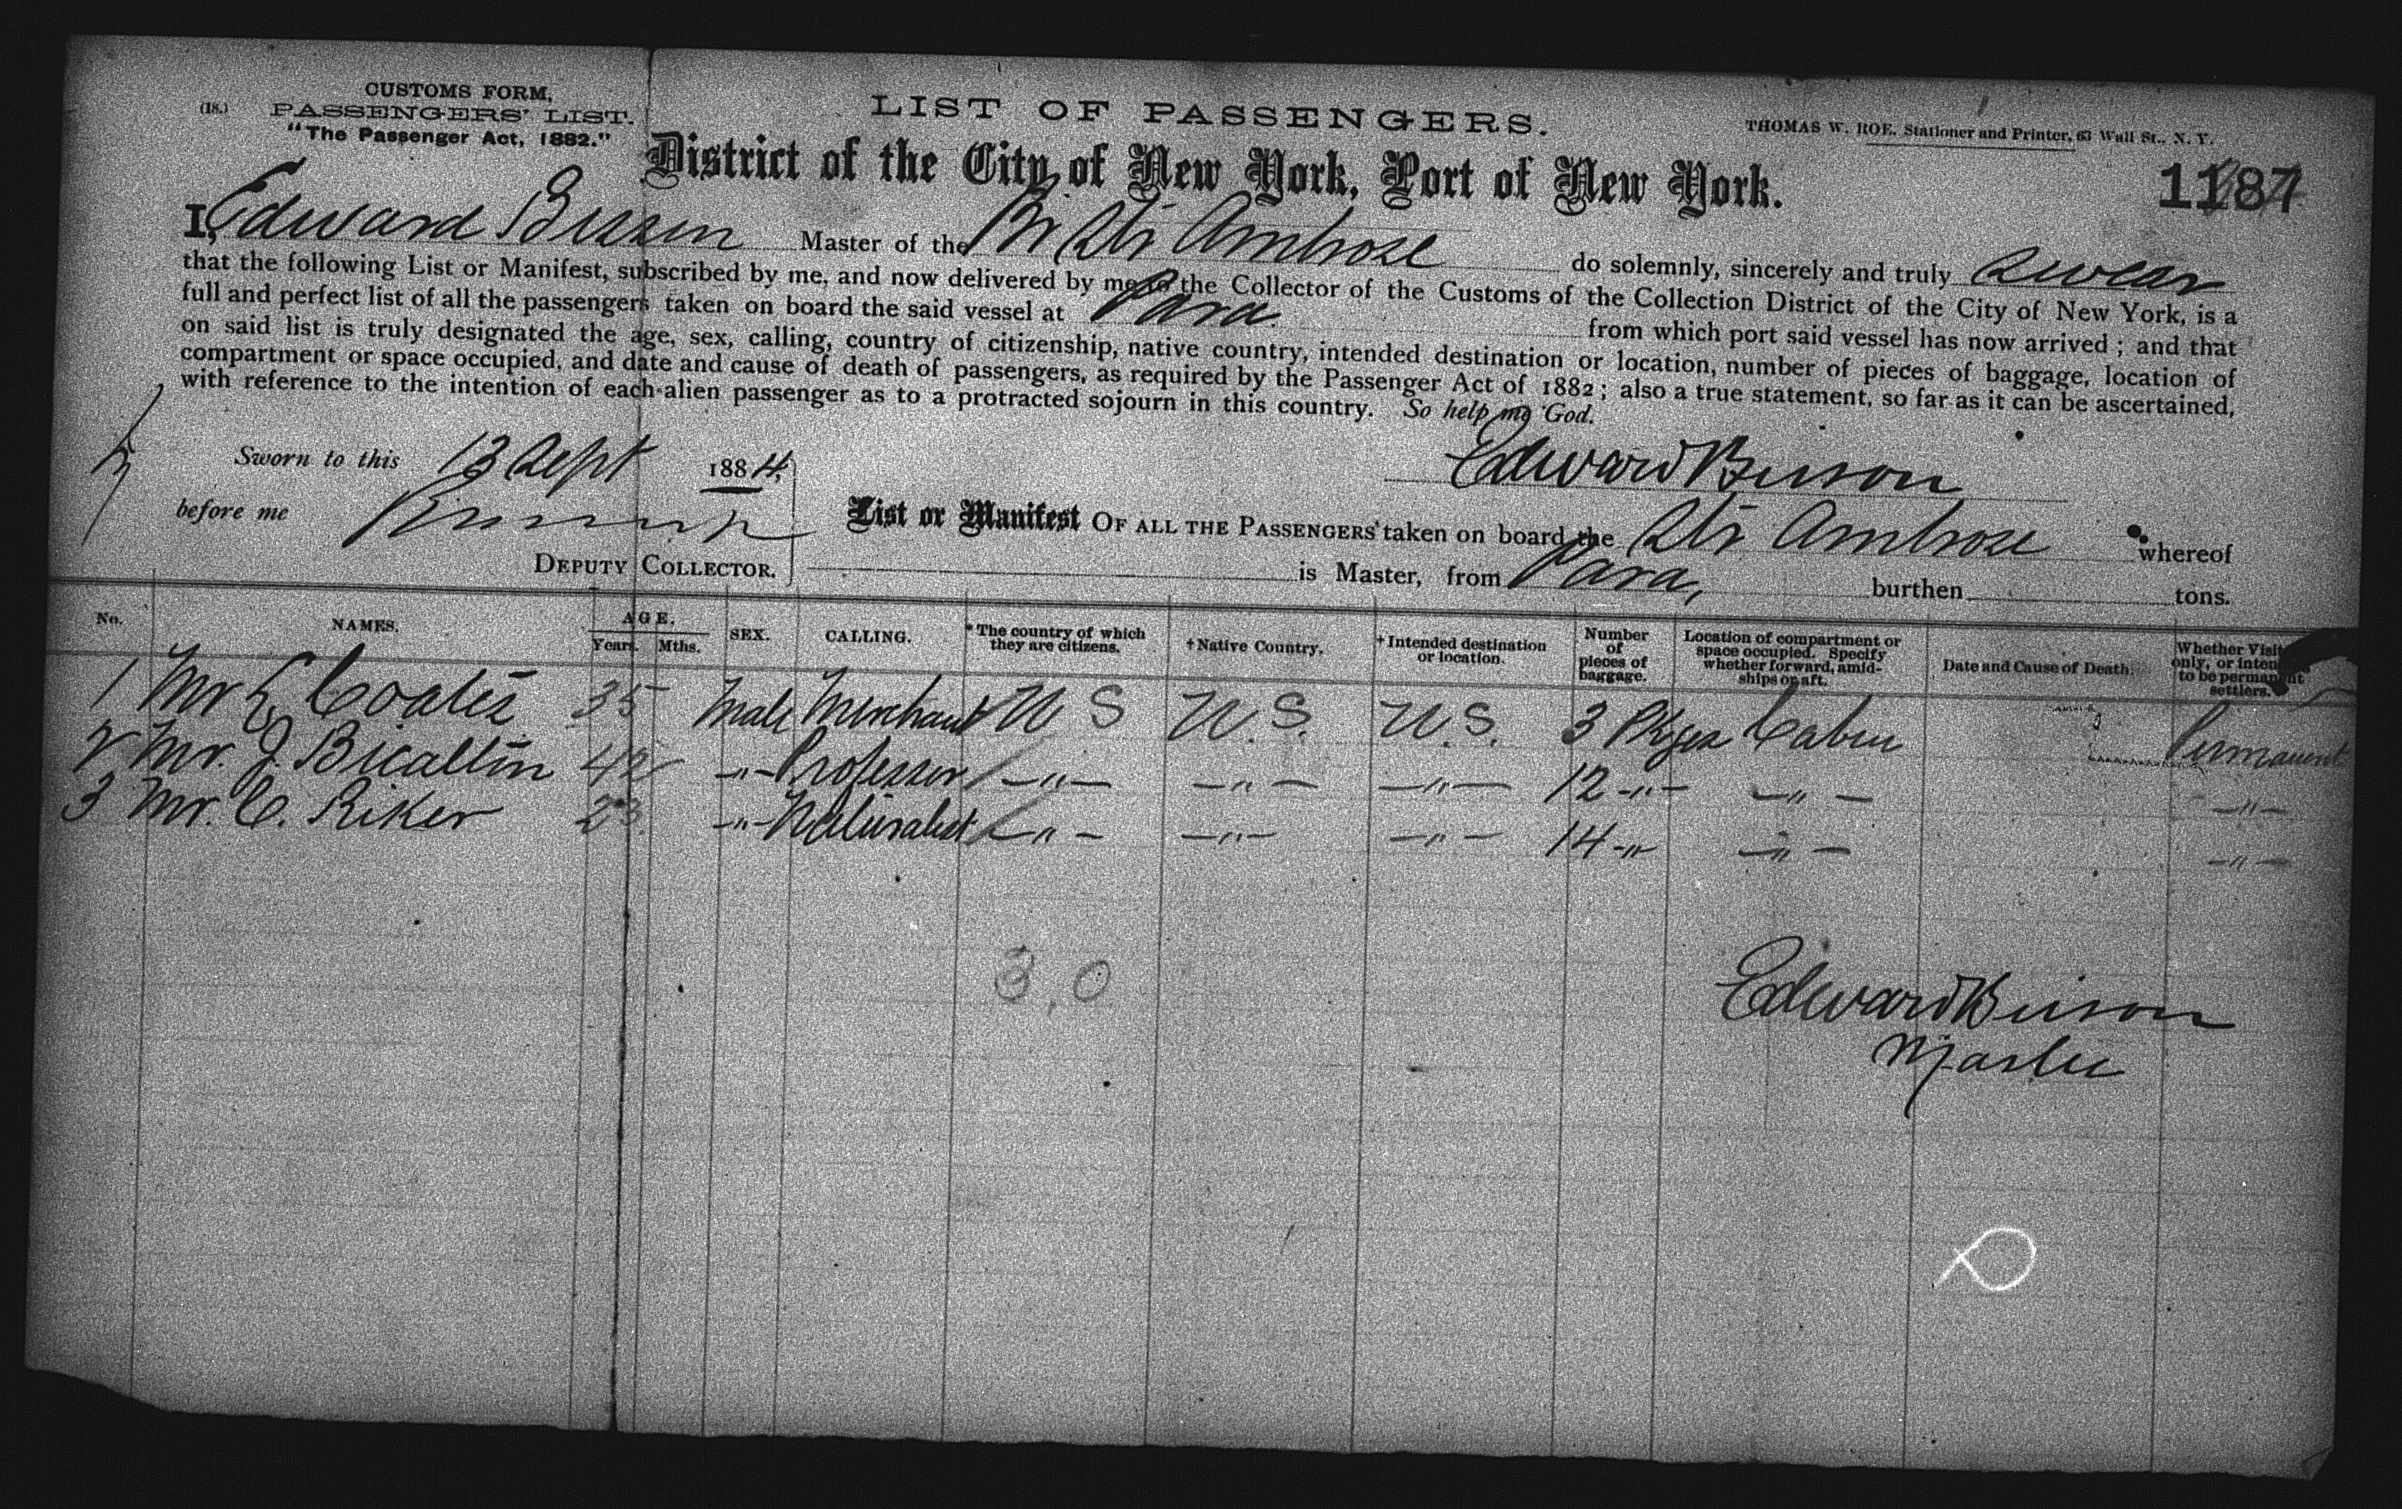 CUSTOMS FORM,
(18.) PASSENGERS' LIST.
"The Passenger Act, 1882."
LIST OF PASSENGERS.
THOMAS W. ROE, Stationer and Printer, 63 Wall St., N. Y.
District of the City of New York, Port of New York.
1187
I, Edward Bisson Master of the Br Str Ambrose do solemnly, sincerely and truly swear
that the following List or Manifest, subscribed by me, and now delivered by me to the Collector of the Customs of the Collection District of the City of New York, is a
full and perfect list of all the passengers taken on board the said vessel at Para from which port said vessel has now arrived; and that
on said list is truly designated the age, sex, calling, country of citizenship, native country, intended destination or location, number of pieces of baggage, location of
compartment or space occupied, and date and cause of death of passengers, as required by the Passenger Act of 1882; also a true statement, so far as it can be ascertained,
with reference to the intention of each alien passenger as to a protracted sojourn in this country. So help me God.
Sworn to this 13 Sept 1884
Edward Bisson
before me
List or Manifest OF ALL THE PASSENGERS taken on board the Str Ambrose whereof
DEPUTY COLLECTOR.
is Master, from Para, burthen tons.
No. NAMES. AGE. Years. Mths. SEX. CALLING. *The country of which they are citizens. †Native Country. †Intended destination or location. Number of pieces of baggage. Location of compartment or space occupied. Specify whether forward, amidships or aft. Date and Cause of Death. Whether Visit only, or inten to be permanent settlers.
1 Mr Coates 35 Male Merchant U S U.S. U.S. 3 Pkges Cabin Permanent
2 Mr. J. 42 -"- Professor -"- -"- -"- 12 -"- -"- -"-
3 Mr. C. Riker 23. -"- Naturalist -"- -"- -"- 14 -"- -"- -"-
3,0
Edward Bisson
Master